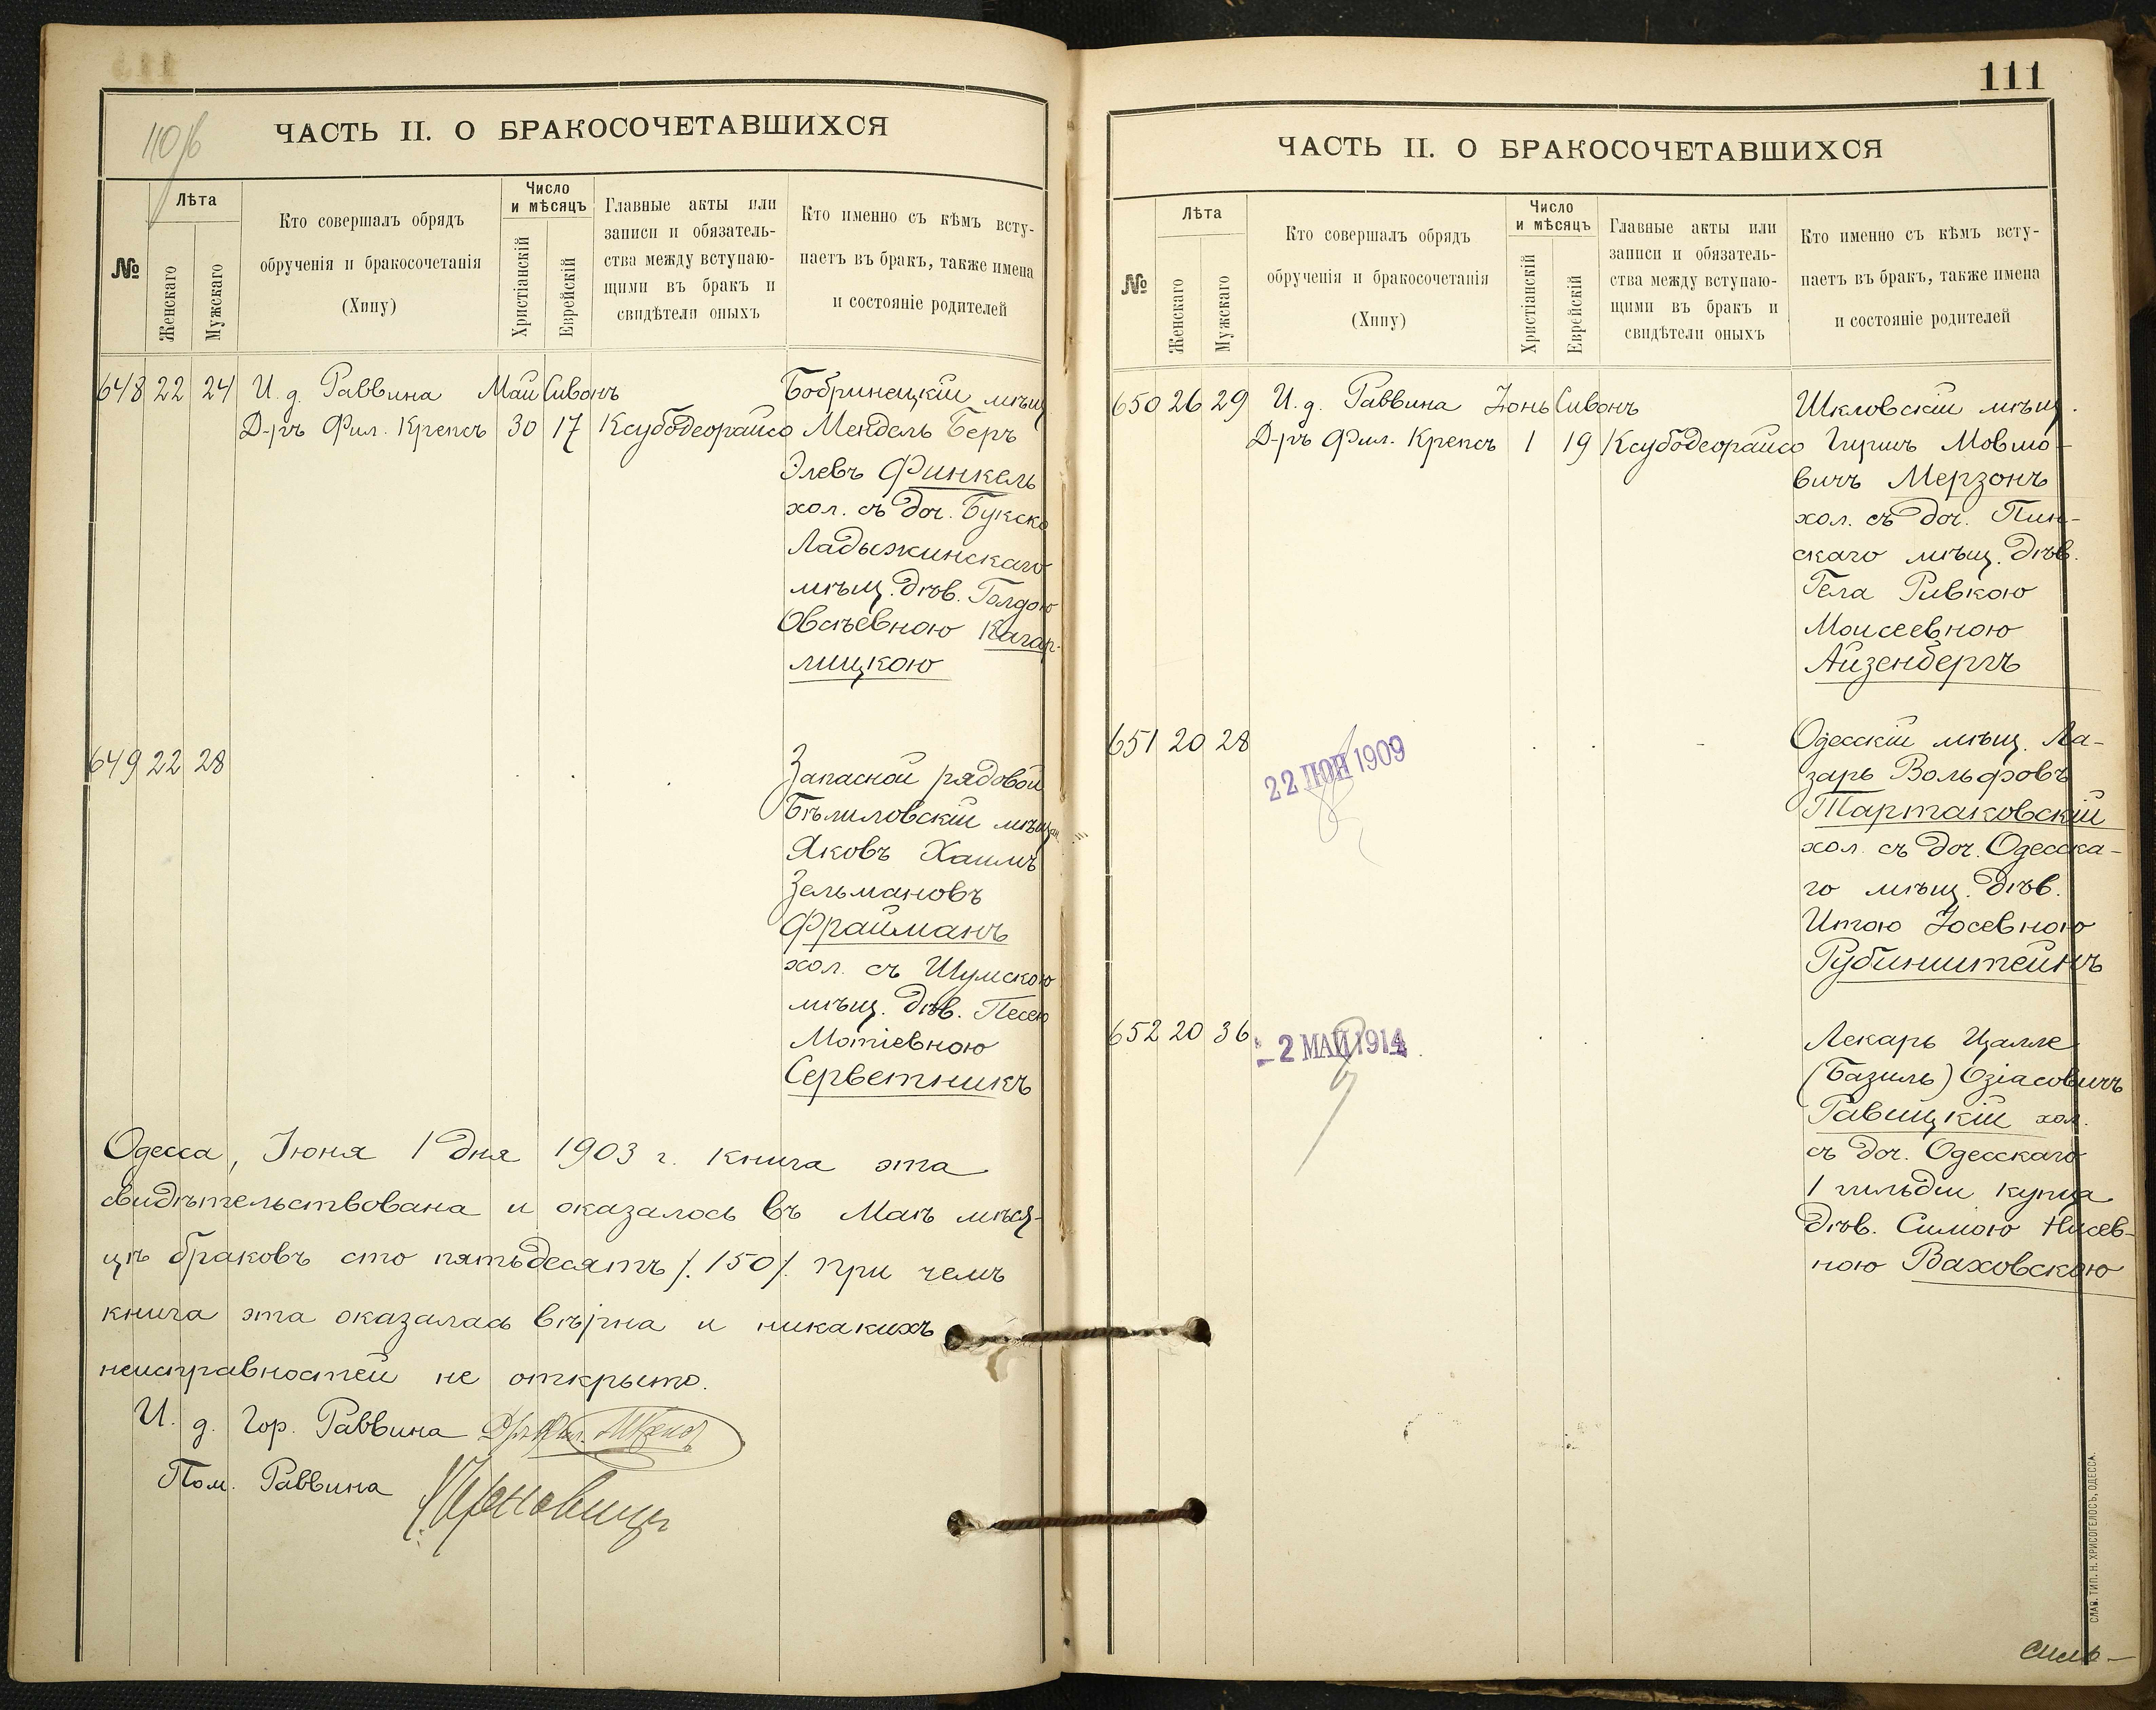 110/б
ЧАСТЬ II. О БРАКОСОЧЕТАВШИХСЯ
№
Лѣта
Женскаго
Мужскаго
Кто совершалъ обрядъ
обрученія и бракосочетанія
(Хипу)
Число
и мѣсяцъ
Христіанскій
Еврейскій
Главные акты или
записи и обязатель-
ства между вступаю-
щими въ бракъ и
свидѣтели оныхъ
Кто именно съ кѣмъ всту-
паетъ въ бракъ, также имена
и состояніе родителей
648 22 24 И. д. Раввина Май Сивонъ Бобринецкій мѣщ.
Д-ръ Фил. Крепсъ 30 17 Ксубодеорайсо Мендель Беръ
Элевъ Финкель
хол. съ доч.
Ладыжинскаго
мѣщ. дѣв. Голдою
Овсѣевною Кагар-
лицкою
649 22 28 Запасной рядовой
Бѣлиловскій мѣщан.
Яковъ Хаимъ
Зельмановъ
Фрайманъ
хол. съ Шумскою
мѣщ. дѣв. Песею
Мотіевною
Серветникъ
Одесса, Іюня 1 дня 1903 г. книга эта
свидѣтельствована и оказалось въ Маѣ мѣся-
цѣ браковъ сто пятьдесятъ /.150/. при чемъ
книга эта оказалась вѣрна и никакихъ
неисправностей не открыто.
И. д. Гор. Раввина
Пом. Раввина
111
ЧАСТЬ II. О БРАКОСОЧЕТАВШИХСЯ
№
Лѣта
Женскаго
Мужскаго
Кто совершалъ обрядъ
обрученія и бракосочетанія
(Хипу)
Число
и мѣсяцъ
Христіанскій
Еврейскій
Главные акты или
записи и обязатель-
ства между вступаю-
щими въ бракъ и
свидѣтели оныхъ
Кто именно съ кѣмъ всту-
паетъ въ бракъ, также имена
и состояніе родителей
650 26 29 И. д. Раввина Іюнь Сивонъ Шкловскій мѣщ.
Д-ръ Фил. Крепсъ 1 19 Ксубодеорайсо Гиршъ Мовшо-
вичъ Мерзонъ
хол. съ доч. Пин-
скаго мѣщ. дѣв.
Гела Ривкою
Моисеевною
Айзенбергъ
651 20 28 Одесскій мѣщ. Ла-
22 ІЮН 1909
зарь Вольфовъ
Тартаковскій
хол. съ доч. Одесска-
го мѣщ. дѣв.
Итою Іосевною
Рубинштейнъ
652 20 36 Лекарь Цалле
- 2 МАЙ 1914
(Базиль) Озіасовичъ
Равицкій хол.
съ доч. Одесскаго
1 гильдіи купца
дѣв. Симою Нисев-
ною Ваховскою
СЛАВ. ТИП. Н. ХРИСОГЕЛОСЪ, ОДЕССА.